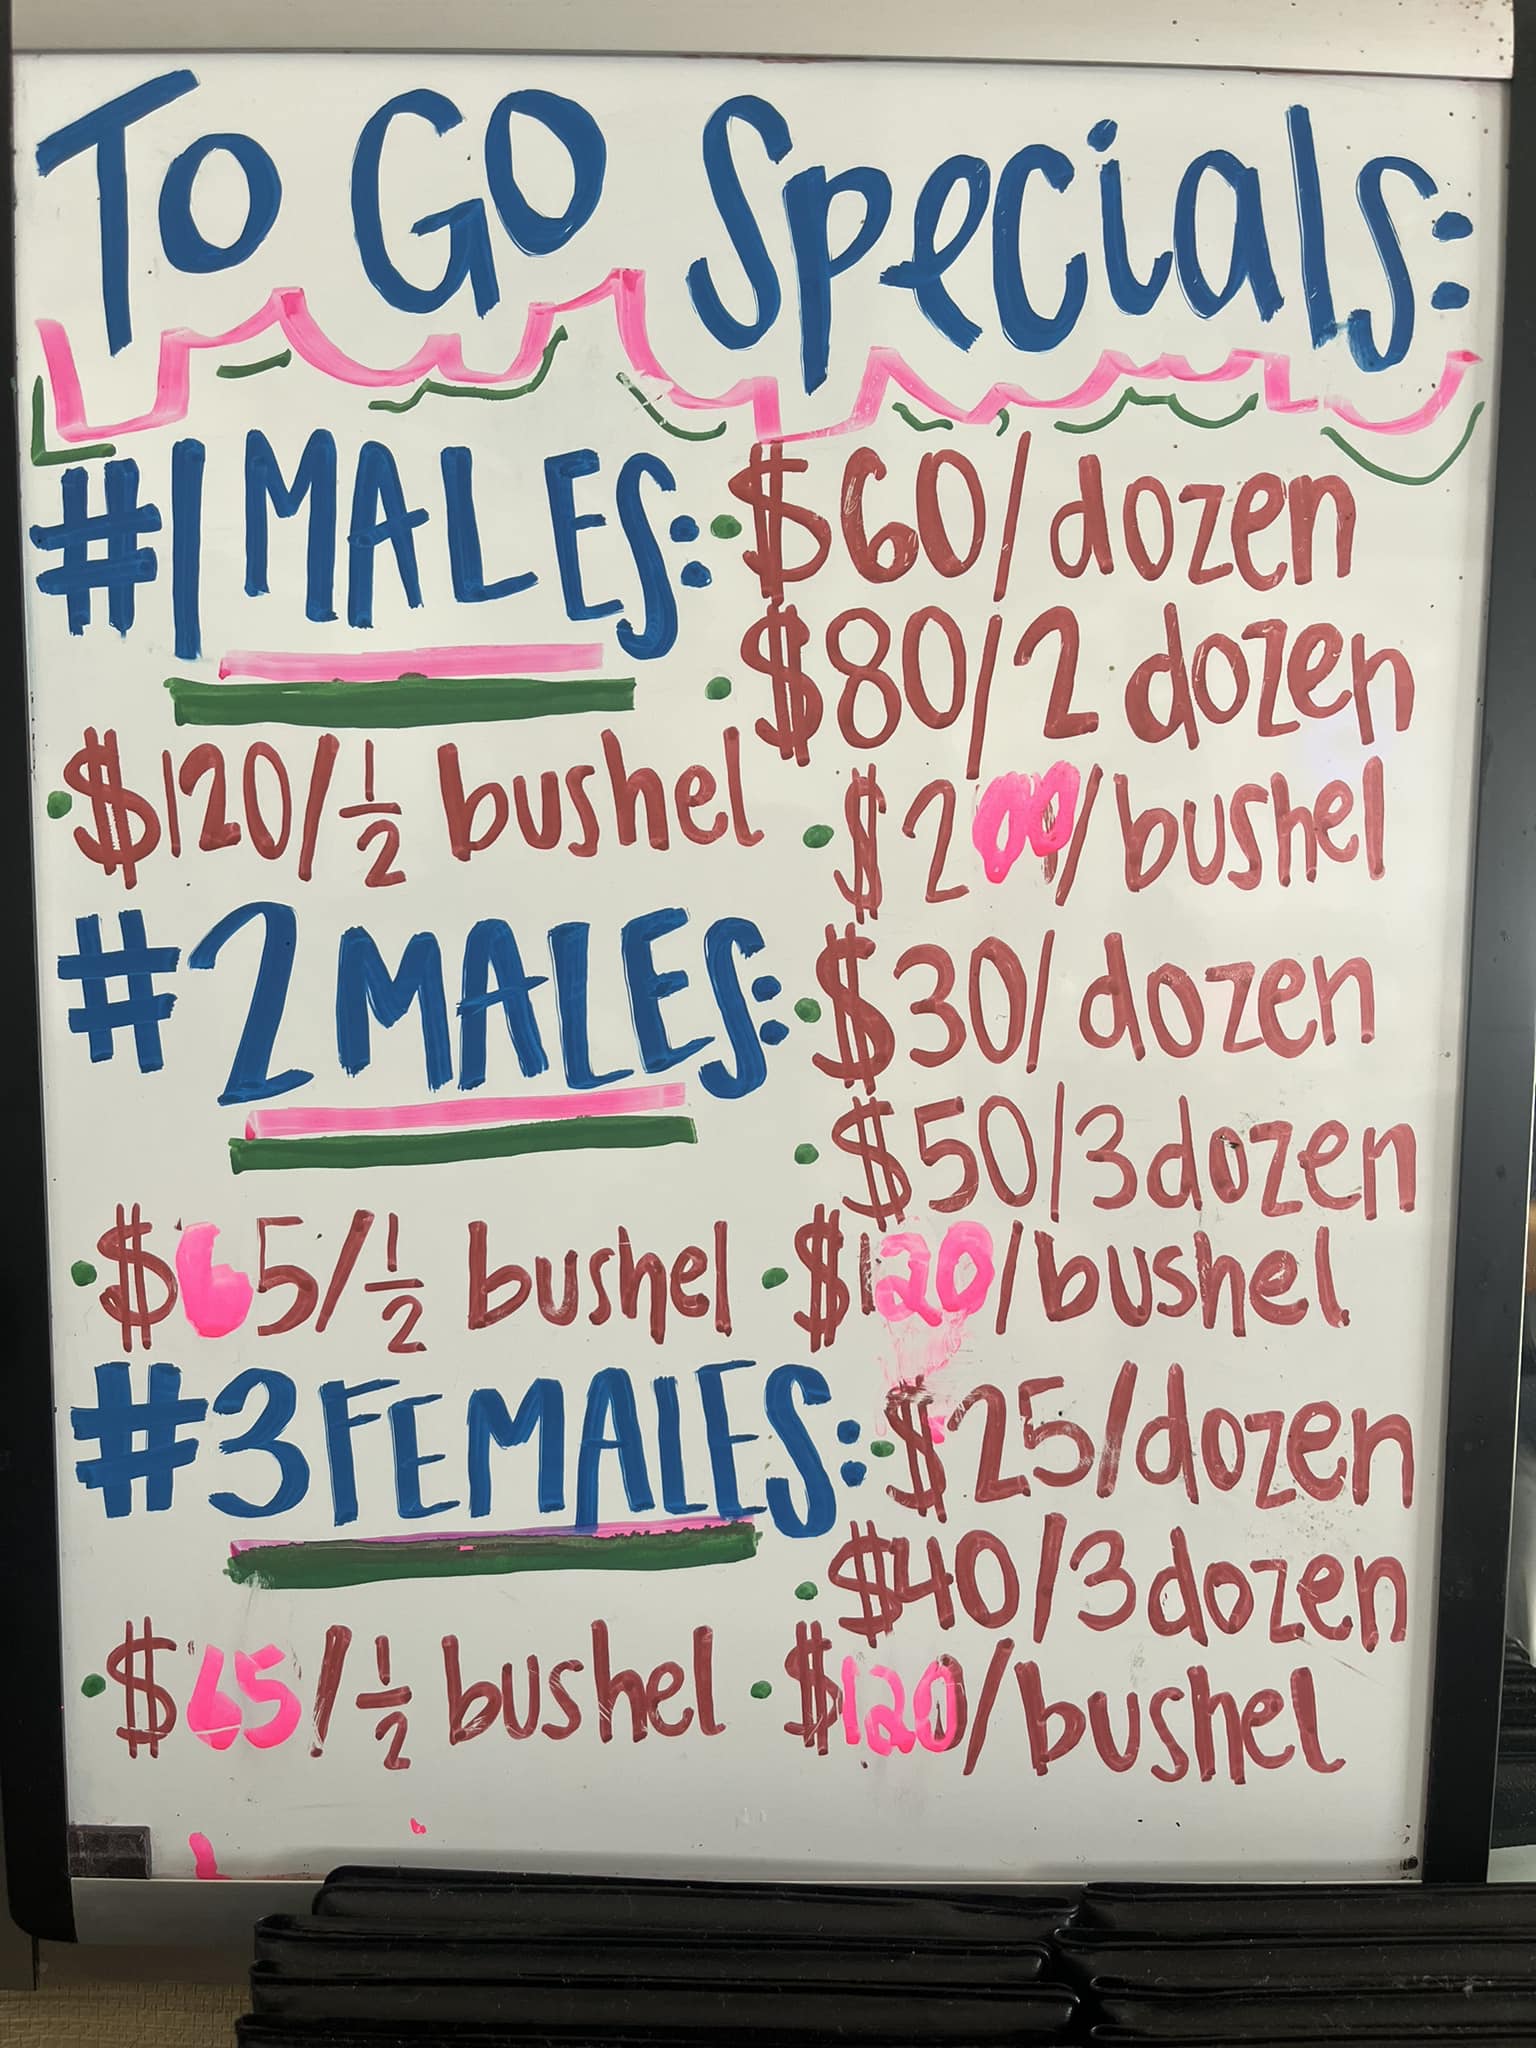 To Go Specials:
#1 MALES: • $60/dozen
• $80/2 dozen
• $120/½ bushel • $200/bushel
#2 MALES: • $30/dozen
• $50/3 dozen
• $65/½ bushel • $120/bushel
#3 FEMALES: • $25/dozen
• $40/3 dozen
• $65/½ bushel • $120/bushel